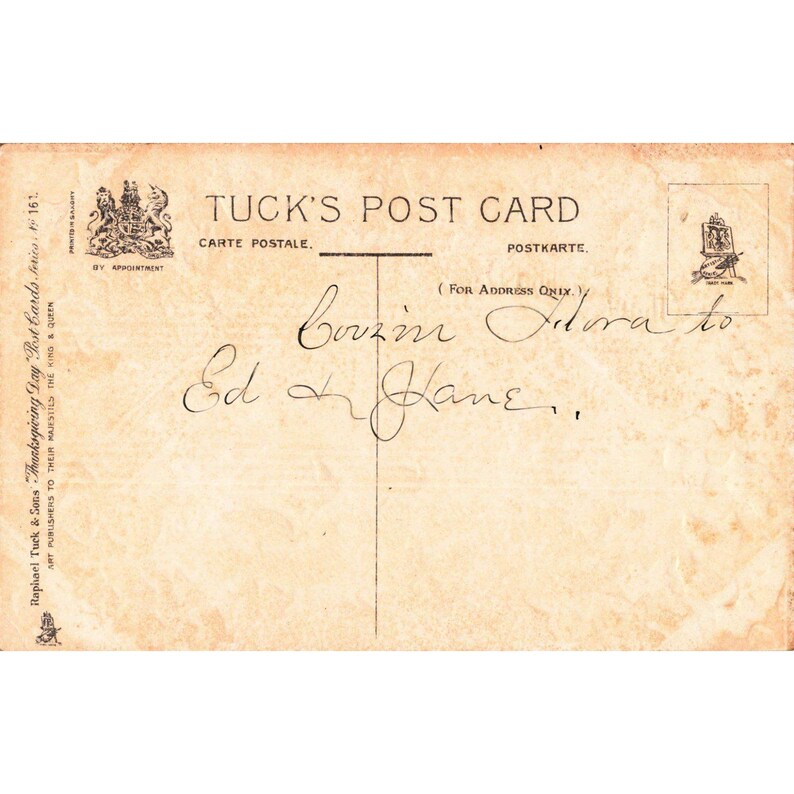 TUCK'S POST CARD
CARTE POSTALE.
POSTKARTE.
BY APPOINTMENT
PRINTED IN SAXONY
TRADE MARK
( FOR ADDRESS ONLY. )
Cousin Flora to
Ed & Jane.
Raphael Tuck & Sons' "Thanksgiving Day" Post Cards Series № 161.
ART PUBLISHERS TO THEIR MAJESTIES THE KING & QUEEN